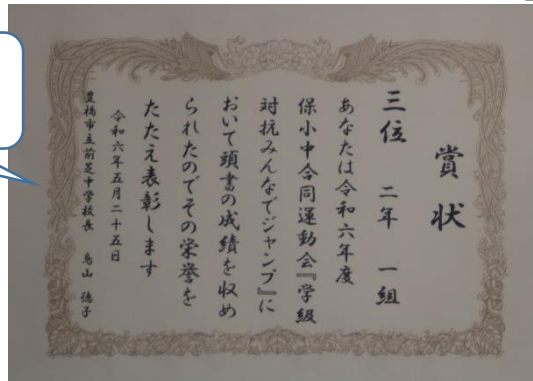 賞状
三位 二年 一組
あなたは令和六年度
保小中合同運動会『学級
対抗みんなでジャンプ』に
おいて頭書の成績を収め
られたのでその栄誉を
たたえ表彰します
令和六年五月二十五日
豊橋市立前芝中学校長 鳥山 徳子